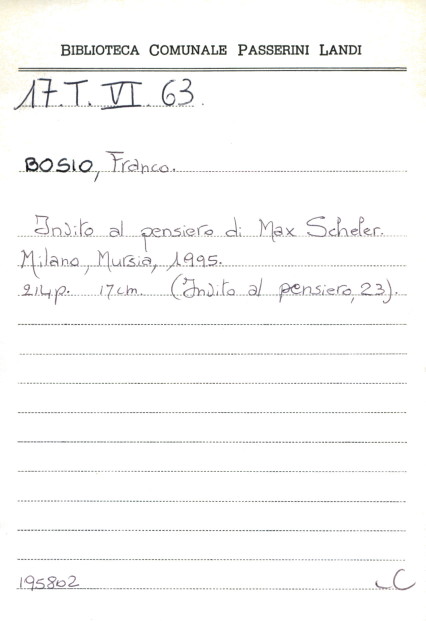 BIBLIOTECA COMUNALE PASSERINI LANDI
17.T.VI.63.
BOSIO, Franco.
Invito al pensiero di Max Scheler.
Milano, Mursia, 1995.
214p. 17cm. (Invito al pensiero, 23).
195802 LC